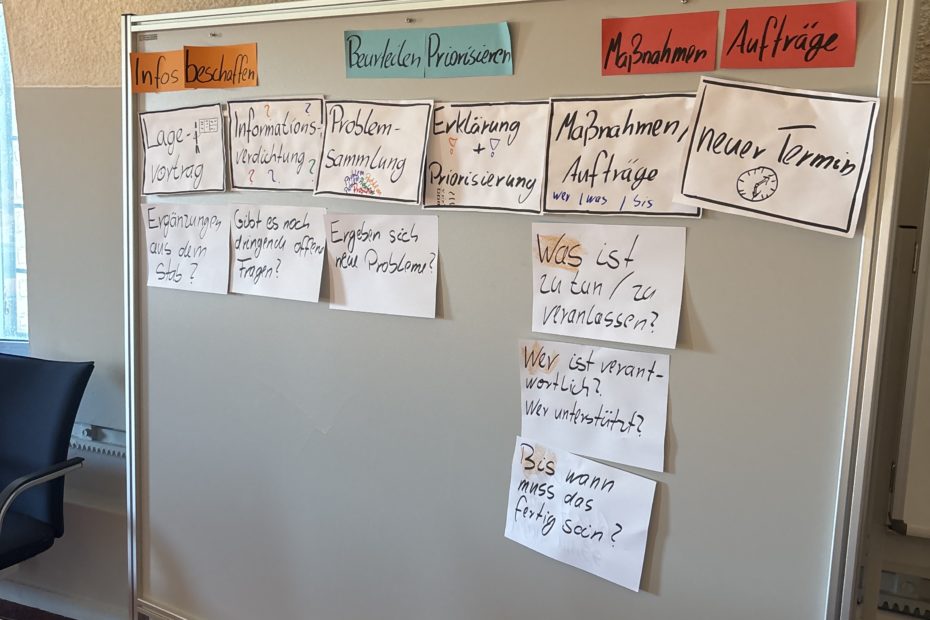 Infos beschaffen
Beurteilen Priorisieren
Maßnahmen
Aufträge
Lage-
vortrag
Informations-
verdichtung
? ? ? ? ?
Problem-
Sammlung
Erklärung
! + !
Priorisierung
Maßnahmen,
Aufträge
wer / was / bis
neuer Termin
Ergänzungen
aus dem
Stab?
Gibt es noch
dringende offene
Fragen?
Ergeben sich
neue Probleme?
Was ist
zu tun / zu
veranlassen?
Wer ist verant-
wortlich?
Wer unterstützt?
Bis wann
muss das
fertig sein?